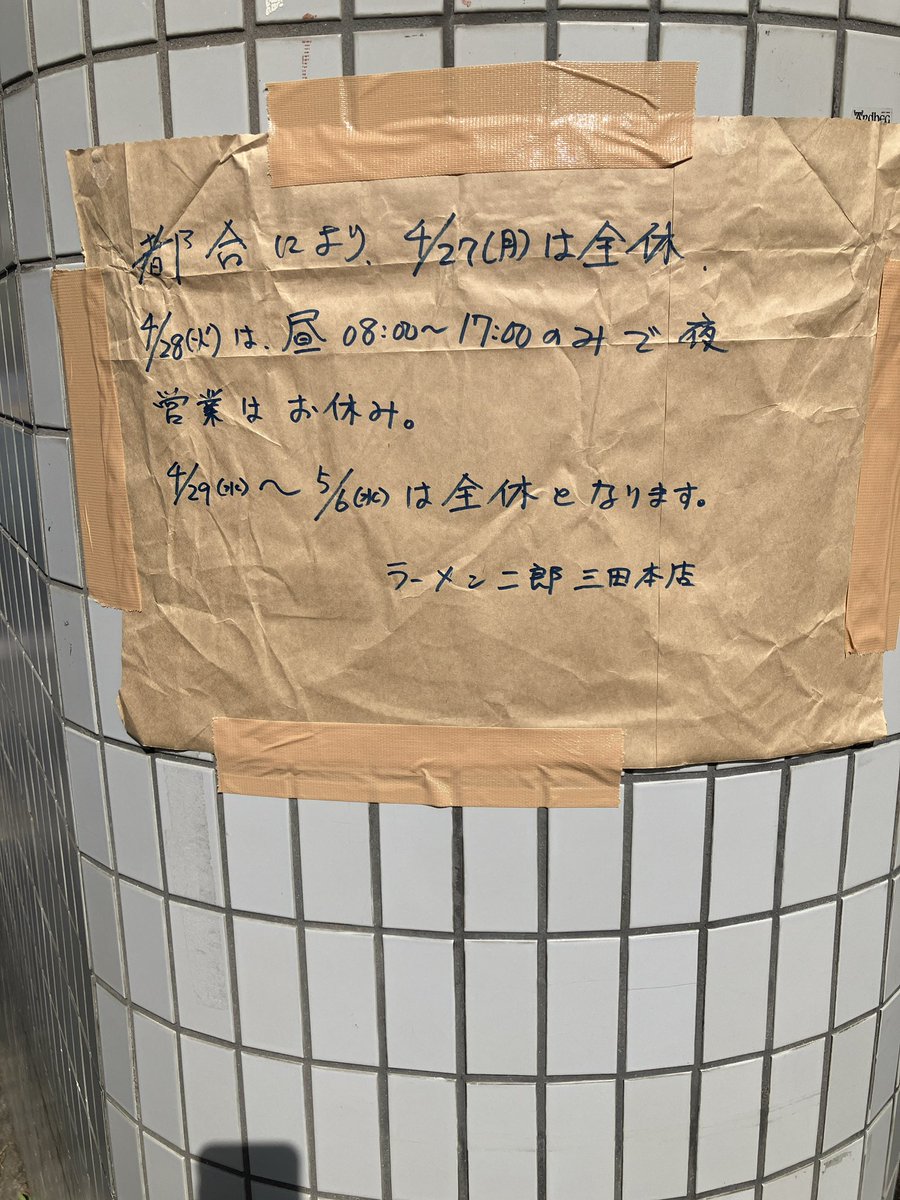 都合により、4/27(月)は全休.
4/28(火)は、昼 08:00〜17:00のみで夜
営業はお休み。
4/29(水)〜5/6(水)は全休となります。
ラーメン二郎 三田本店